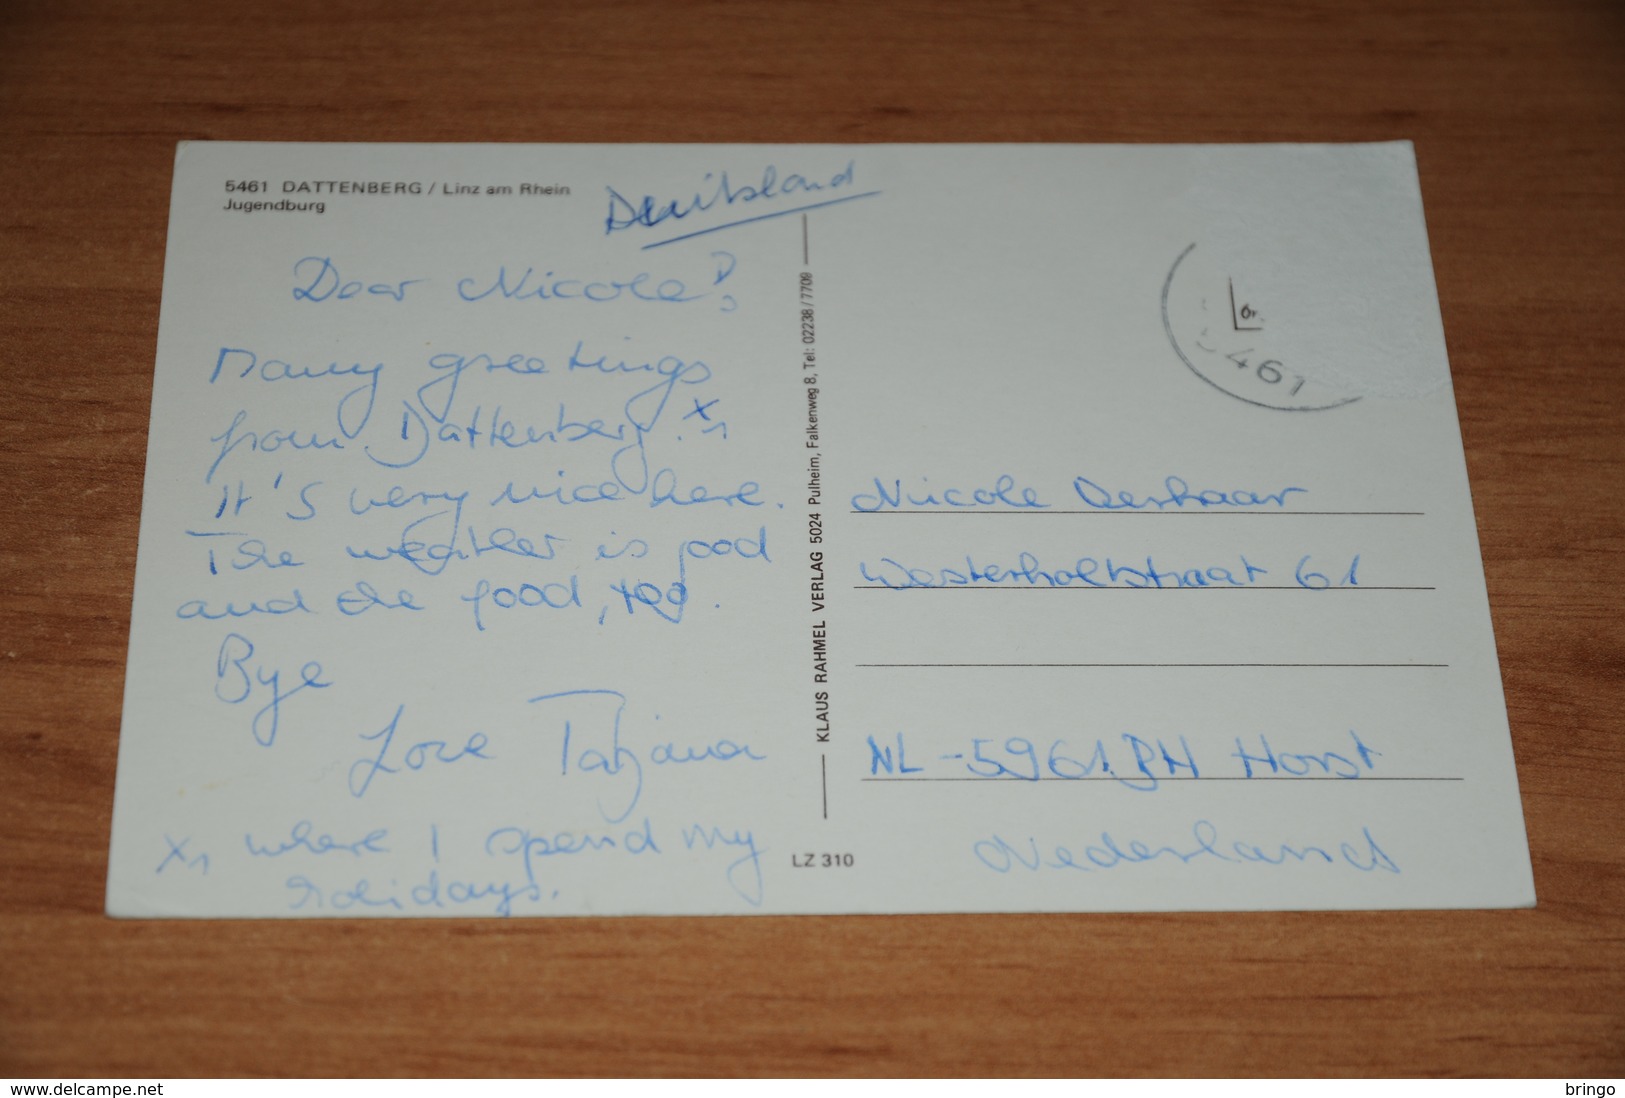 5461 DATTENBERG / Linz am Rhein
Jugendburg
Deutschland
Dear Nicole!
Many greetings
from Dattenberg. x1
It's very nice here.
The weather is good
and the food, too.
Bye
Love Tatjana
x1 where I spend my
holidays.
KLAUS RAHMEL VERLAG 5024 Pulheim, Falkenweg 8, Tel: 02238/7709
LZ 310
5461
Nicole
Westerholtstraat 61
NL-5961 BH Horst
Nederland
delcampe.net
bringo